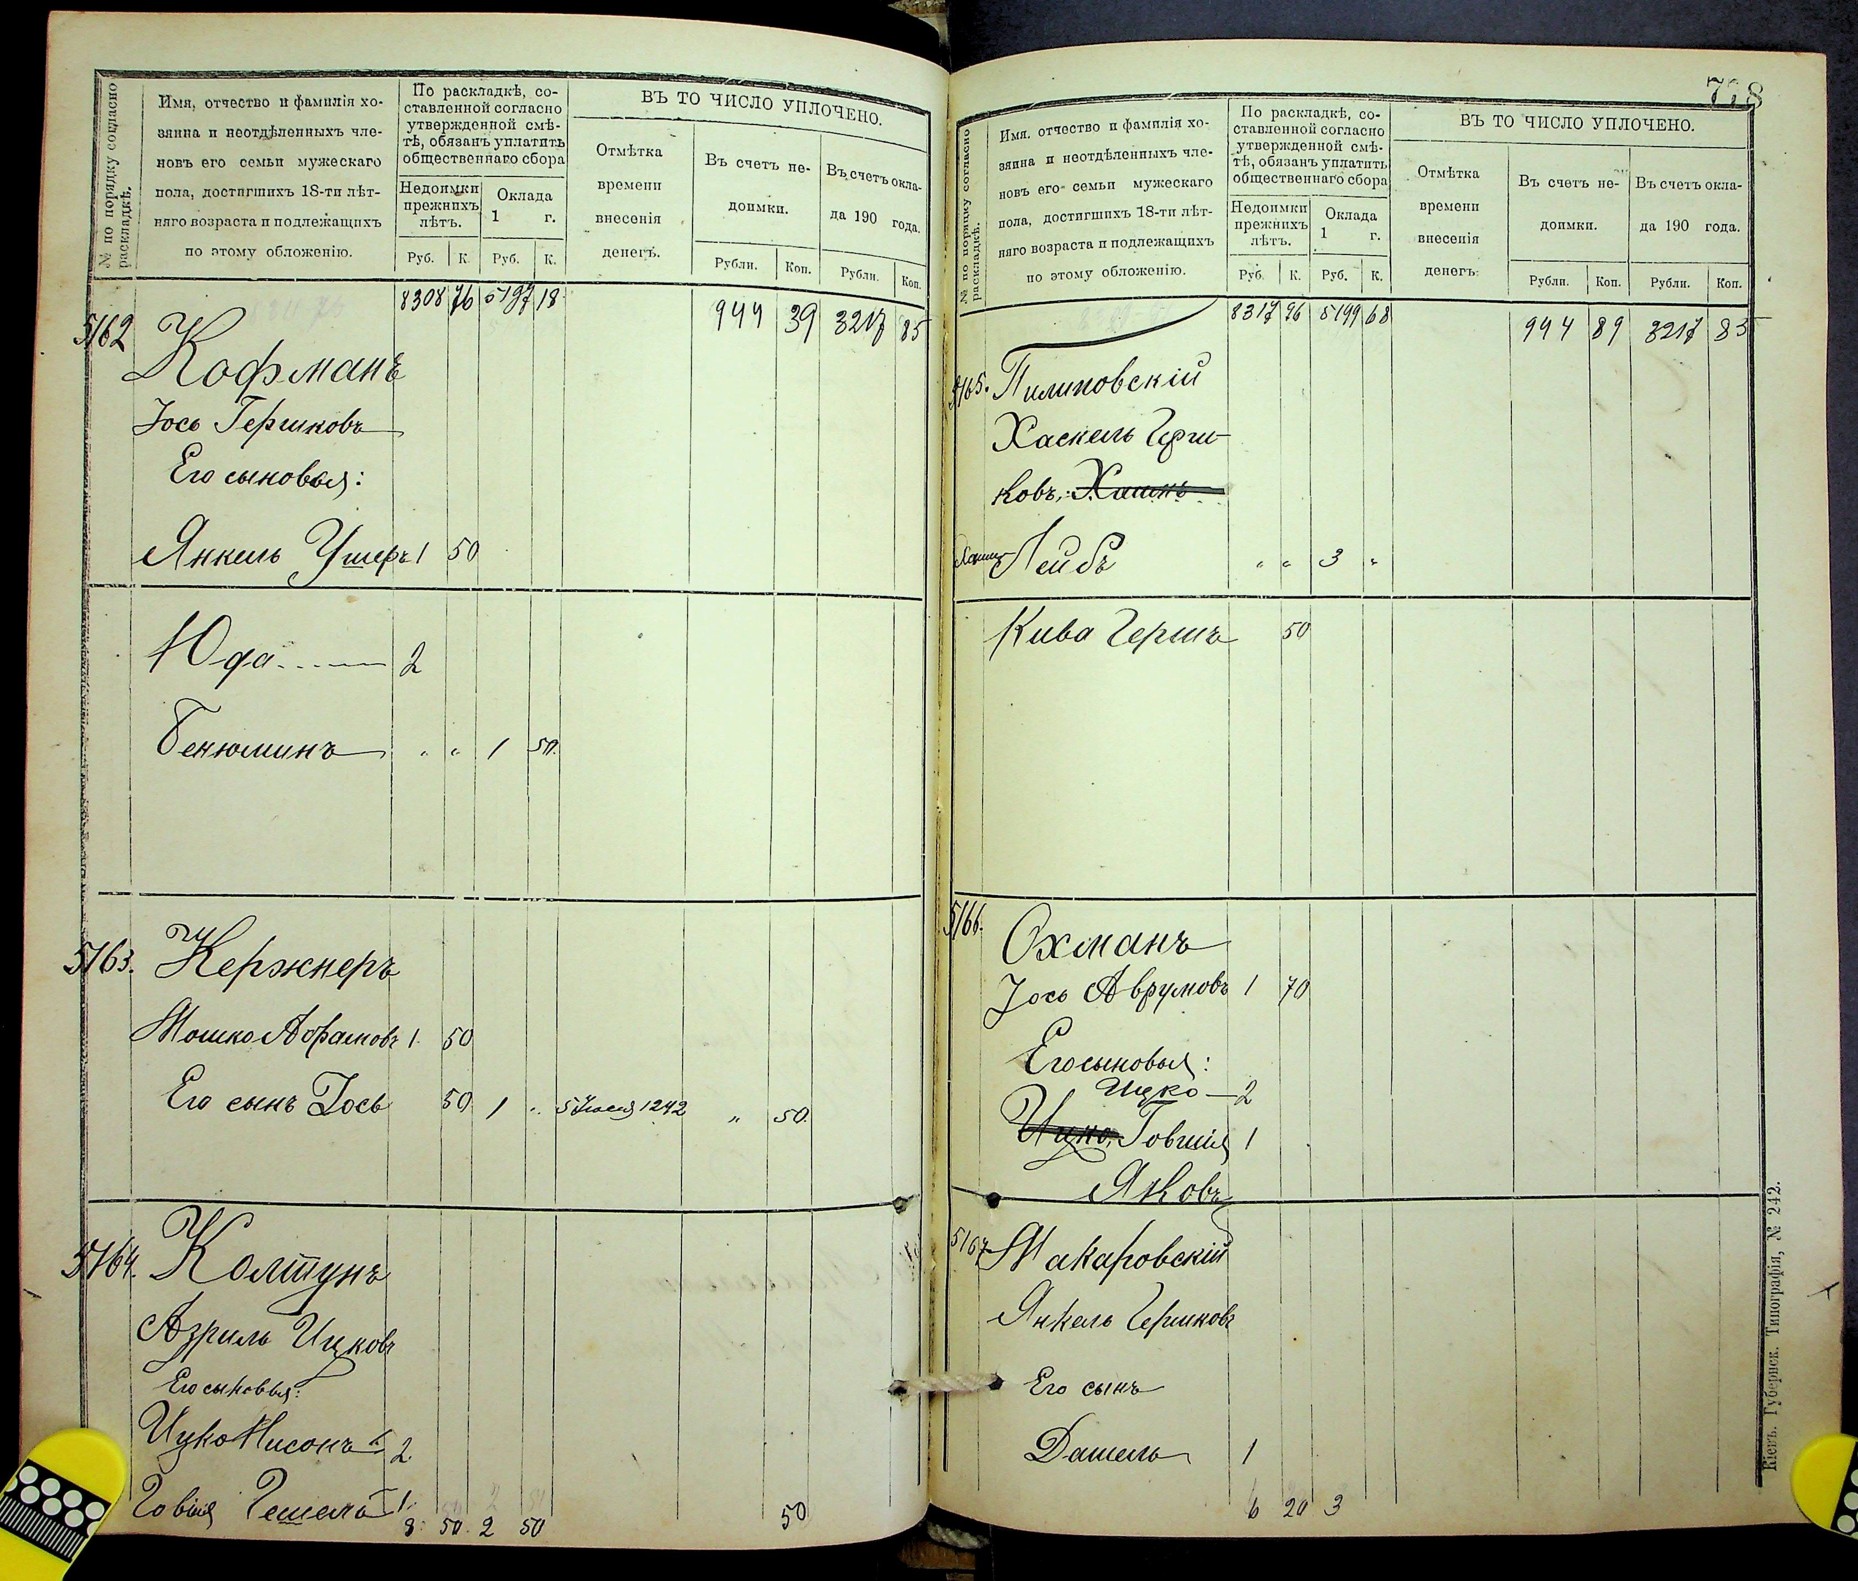 № по порядку согласно раскладкѣ.
Имя, отчество и фамилія хо-
зяина и неотдѣленныхъ чле-
новъ его семьи мужескаго
пола, достигшихъ 18-ти лѣт-
няго возраста и подлежащихъ
по этому обложенію.
По раскладкѣ, со-
ставленной согласно
утвержденной смѣ-
тѣ, обязанъ уплатить
общественнаго сбора
Недоимки прежнихъ лѣтъ.
Оклада 1 г.
Руб. К. Руб. К.
ВЪ ТО ЧИСЛО УПЛОЧЕНО.
Отмѣтка
времени
внесенія
денегъ.
Въ счетъ не-
доимки.
Въ счетъ окла-
да 190 года.
Рубли. Коп. Рубли. Коп.
8308 76 5197 18 944 39 3217 85
5162 Кофманъ
Іось Гершковъ
Его сыновья:
Янкель Ушеръ 1 50
Юда 2
Бенюминъ " " 1 50
5163. Кержнеръ
Мошко Абрамовъ 1 50
Его сынъ Іось 50 1 " 1242 " 50
5164. Колтунъ
Азриль Ицковъ
Его сыновья:
Ицко Нисонъ 2
Товія Гешель 1
8 50 2 50 50
778
№ по порядку согласно раскладкѣ.
Имя, отчество и фамилія хо-
зяина и неотдѣленныхъ чле-
новъ его семьи мужескаго
пола, достигшихъ 18-ти лѣт-
няго возраста и подлежащихъ
по этому обложенію.
По раскладкѣ, со-
ставленной согласно
утвержденной смѣ-
тѣ, обязанъ уплатить
общественнаго сбора
Недоимки прежнихъ лѣтъ.
Оклада 1 г.
Руб. К. Руб. К.
ВЪ ТО ЧИСЛО УПЛОЧЕНО.
Отмѣтка
времени
внесенія
денегъ.
Въ счетъ не-
доимки.
Въ счетъ окла-
да 190 года.
Рубли. Коп. Рубли. Коп.
8317 26 5199 68 944 89 3217 85
5165. Пилиповскій
Хаскель Герш-
ковъ.
Лейбъ " " 3 "
Кива Гершъ 50
5166. Охманъ
Іось Аврумовъ 1 70
Его сыновья:
Ицко 2
Ицко, Говшія 1
Яковъ
5167 Макаровскій
Янкель Гершковъ
Его сынъ
Данель 1
6 20 3
Кіевъ. Губернск. Типографія, № 242.